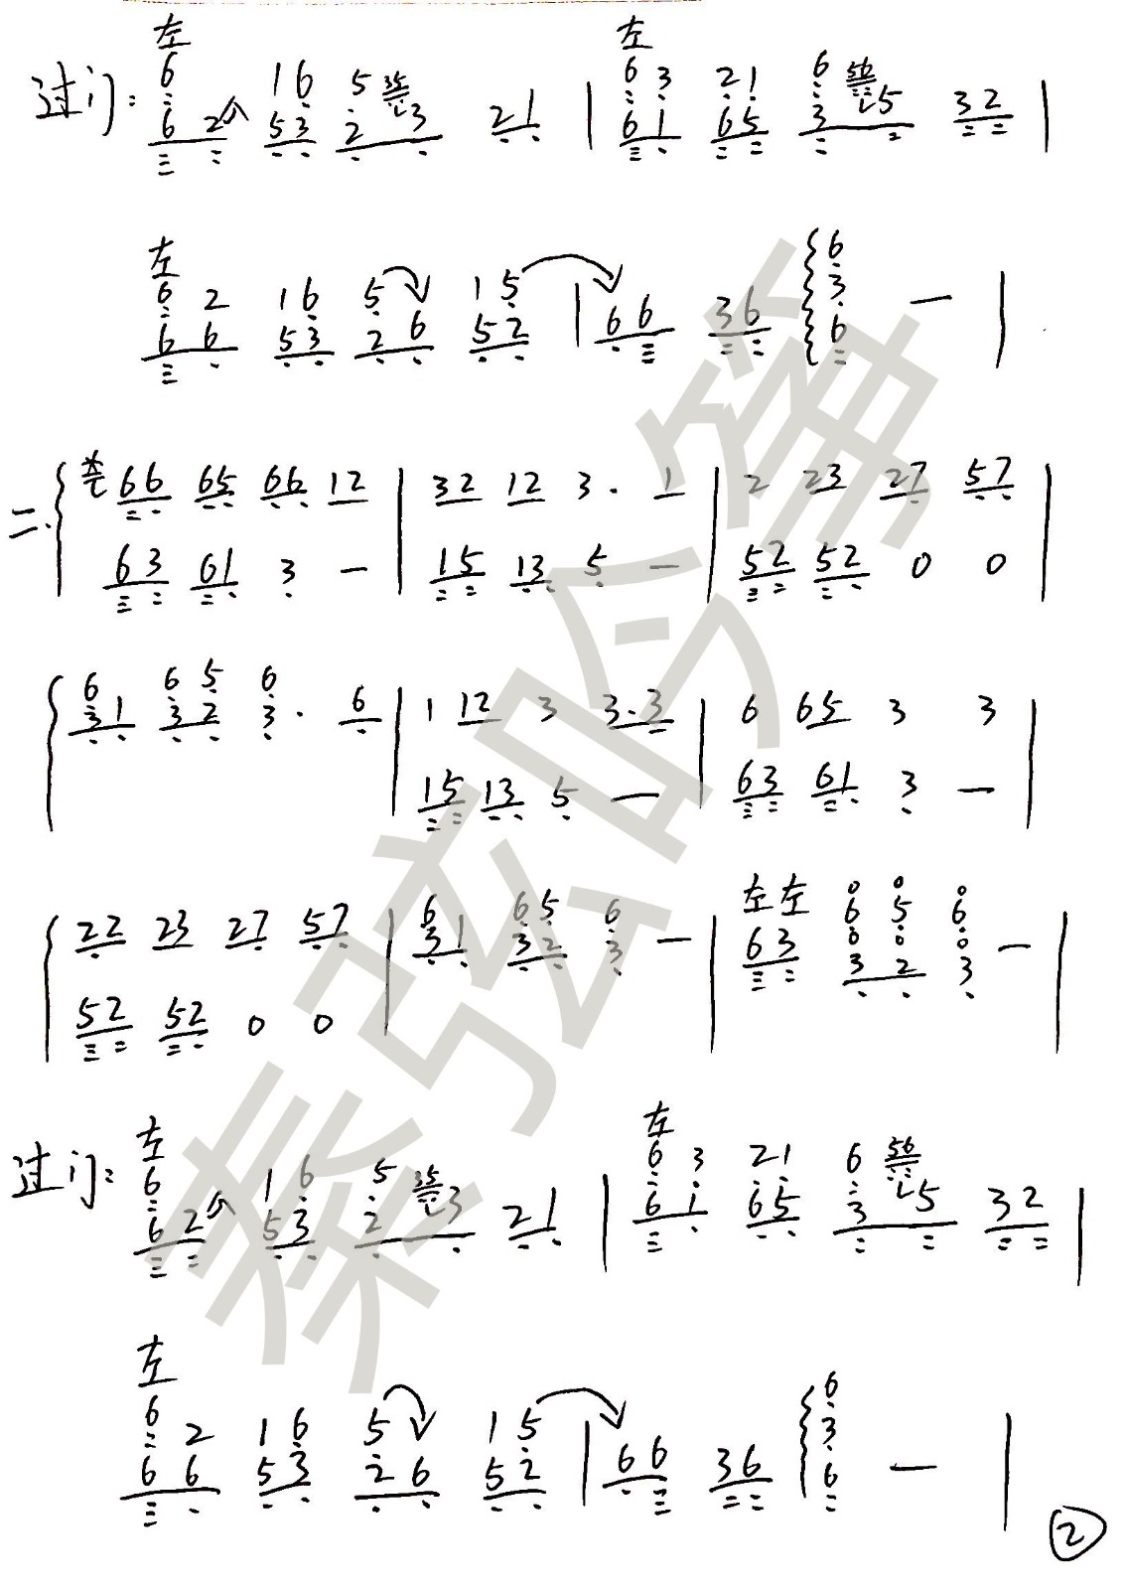 左 左
6 16 5 35 6 3 21 6 56
过门: 6 2 53 2 3 21 | 61 65 3 5 32 |
左
6 2 16 5 15 6
6 6 53 2 6 52 | 66 36 3 — |
6
二. 66 65 66 12 | 32 12 3 . 1 | 2 23 27 57 |
63 61 3 — | 15 13 5 — | 52 52 0 0 |
6 6 5 6
31 32 3 . 6 | 1 12 3 3.3 | 6 65 3 3 |
15 13 5 — | 63 61 3 — |
6 65 6 左左 6 5 6
22 23 27 57 | 31 32 3 — | 63 3 2 3 — |
52 52 0 0
左 左
6 16 5 35 6 3 21 6 56
过门: 6 2 53 2 3 21 | 61 65 3 5 32 |
左
6 2 16 5 15 6
6 6 53 2 6 52 | 66 36 3 — |
6
②
秦弦吟筝